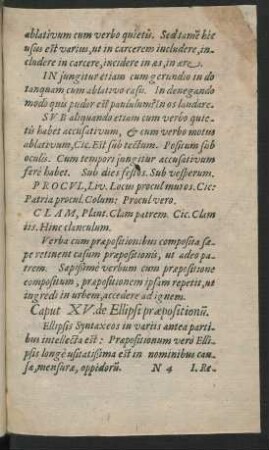 ablativum cum verbo quietũ. Sed tamẽ hic
usus est varius, ut in carcerem includere, in-
cludere in carcere, incidere in as, in ære.
IN jungitur etiam cum gerundio in do
tanquam cum ablativo casu. In denegando
modo quis pudor est paululum? In os laudare.
SVB aliquando etiam cum verbo quie-
tũ habet accusativum, & cum verbo motus
ablativum, Cic. Est sub tectum. Positum sub
oculis. Cum tempori jungitur accusativum
ferè habet. Sub dies festos. Sub vesperum.
PROCVL, Liv. Locus procul muros. Cic:
Patria procul. Colum: Procul vero.
CLAM, Plaut. Clam patrem. Cic. Clam
iis. Hinc clanculum.
Verba cum præpositionibus composita sæ-
pe retinent casum præpositionis, ut adeo pa-
trem. Sæpissimè verbum cum præpositione
compositum, præpositionem ipsam repetit, ut
ingredi in urbem, accedere ad ignem.
Caput XV. de Ellipsi præpositionũ.
Ellipsis Syntaxeos in variis antea parti-
bus intellecta est: Præpositionum verò Elli-
psis longè usitatissima est in nominibus cau-
sæ, mensuræ, oppidorũ. N 4 I. Re-